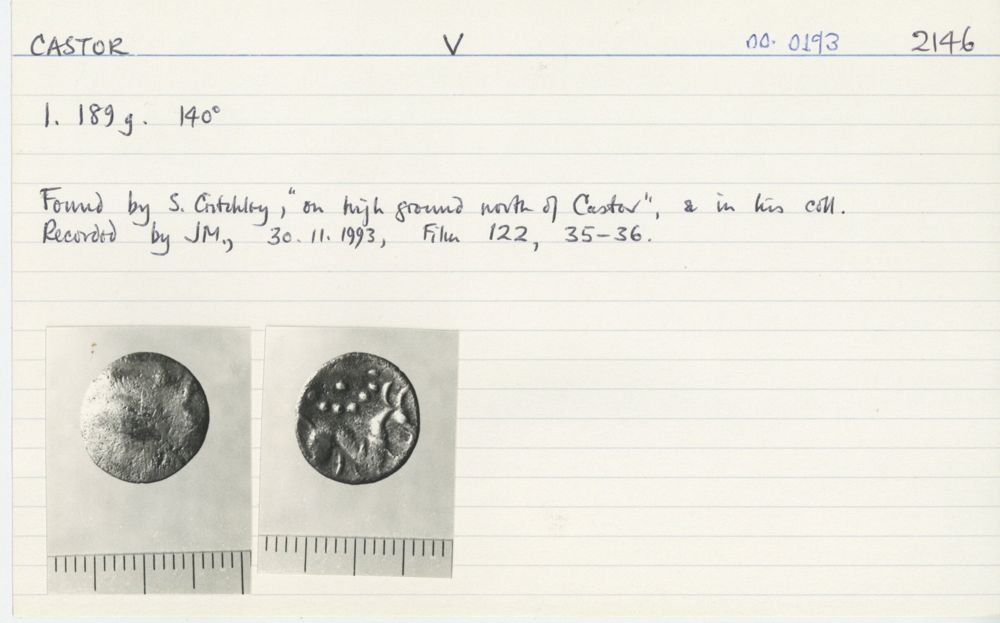 CASTOR V 00. 0193 2146
1. 189 g. 140°
Found by S. Critchley, "on high ground north of Castor", & in his coll.
Recorded by JM., 30.11.1993, Film 122, 35-36.